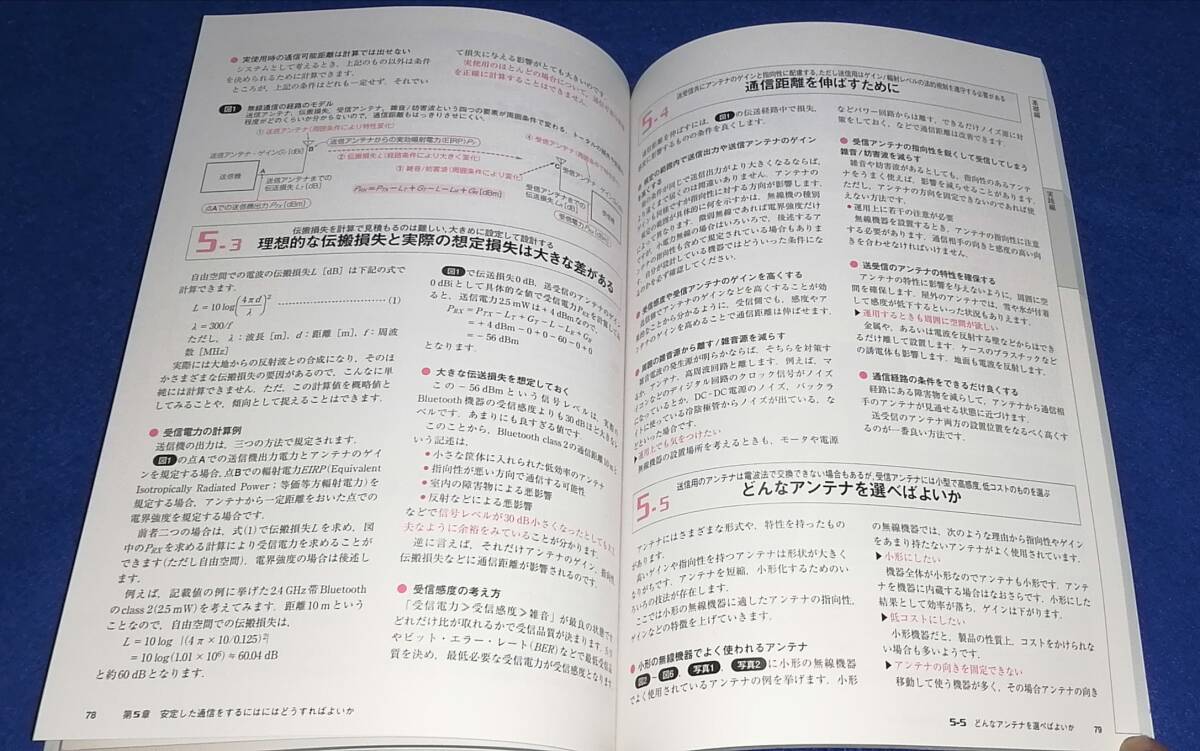 ● 実使用時の通信可能距離は計算では出せない
システムとして考えるとき，上記のもの以外は条件
を決められるために計算できます．
ところが，上記はどれも一定せず，それでい
て損失に与える影響がとても大きいのです．
図1 無線通信の経路のモデル
① 送信アンテナ(周囲条件により特性変化)
送信アンテナからの実効輻射電力(EIRP)
② 伝搬損失L(経路条件により大きく変化)
③ 雑音/妨害波(周囲条件により変化)
送信機
送信アンテナまでの
点Aでの送信機出力PTX[dBm]
PRX=PTX−LT+GT−L−LR+GR[dBm]
受信アンテナまでの
5-3
伝搬損失を計算で見積もるのは難しい，大きめに設定して設計する
理想的な伝搬損失と実際の想定損失は大きな差がある
自由空間での電波の伝搬損失L［dB］は下記の式で
計算できます．
L＝10 log(4πd/λ)² ……(1)
λ＝300/f
ただし，λ：波長［m］，d：距離［m］，f：周波
数［MHz］
実際には大地からの反射波との合成になり，そのほ
かさまざまな伝搬損失の要因があるので，こんなに単
純には計算できません．ただ，この計算値を概略値と
してみることや，傾向として捉えることはできます．
● 受信電力の計算例
送信機の出力は，三つの方法で規定されます．
図1の点Aでの送信機出力電力とアンテナのゲイ
ンを規定する場合，点Bでの輻射電力EIRP(Equivalent
Isotropically Radiated Power：等価等方輻射電力)を
規定する場合，アンテナから一定距離をおいた点での
電界強度を規定する場合です．
前者二つの場合は，式(1)で伝搬損失Lを求め，図
中のPRXを求める計算により受信電力を求めることが
できます(ただし自由空間)．電界強度の場合は後述し
ます．
例えば，記載値の例に挙げた2.4 GHz帯Bluetooth
のclass 2(2.5 mW)を考えてみます．距離10 mという
ことなので，自由空間での伝搬損失は，
L＝10 log {(4π×10/0.125)²}
＝10 log(1.01×10⁶)≒60.04 dB
と約60 dBとなります．
図1で伝送損失0 dB，送受信のアンテナのゲイン
0 dBiとして具体的な値で受信電力PRXを計算する
と，送信電力2.5 mWは＋4 dBmなので，
PRX＝PTX−LT＋GT−L−LR＋GR
＝＋4 dBm−0＋0−60−0＋0
＝−56 dBm
となります．
● 大きな伝送損失を想定しておく
この−56 dBmという信号レベルは，実際の
Bluetooth機器の受信感度よりも30 dBほど大きなレ
ベルです．あまりにも良すぎる値です．
このことから，Bluetooth class 2の通信距離10 mと
いう記述は，
・小さな筐体に入れられた低効率のアンテナ
・指向性が悪い方向で通信する可能性
・室内の障害物による悪影響
・反射などによる悪影響
などで信号レベルが30 dB小さくなったとしても大丈
夫なように余裕をみていることが分かります．
逆に言えば，それだけアンテナのゲイン，指向性，
伝搬損失などに通信距離が影響されるのです．
● 受信感度の考え方
「受信電力≫受信感度≫雑音」が最良の状態です．
どれだけ比が取れるかで受信品質が決まります．S/N
やビット・エラー・レート(BER)などで最低受信品
質を決め，最低必要な受信電力が受信感度となります
78 第5章 安定した通信をするにはにはどうすればよいか
送受信共にアンテナのゲインと指向性に配慮する，ただし送信用はゲイン/輻射レベルの法的規制を遵守する必要がある
5-4 通信距離を伸ばすために
通信距離を伸ばすには，図1の伝送経路中で損失，
影響するものの条件を良くします．
● 規定の範囲内で送信出力や送信アンテナのゲイン
を高くする
● 受信感度や受信アンテナのゲインを高くする
ンテナのゲインを高めることで通信距離は伸ばせます．
● 周囲の雑音源から離す/雑音源を減らす
▶運用上でも気をつけたい
無線機器の設置場所を考えるときも，モータや電源
などパワー回路からは離す，できるだけノイズ源に対
策をしておく，などで通信距離は改善できます．
● 受信アンテナの指向性を鋭くして受信してしまう
雑音/妨害波を減らす
雑音や妨害波があるとしても，指向性のあるアンテ
ナをうまく使えば，影響を減らせることがあります．
ただし，アンテナの方向を固定できないのであれば使
えない方法です．
・運用上に若干の注意が必要
無線機器を設置するとき，アンテナの指向性に注意
する必要があります．通信相手の向きと感度の高い向
きを合わせなければいけません．
● 送受信のアンテナの特性を確保する
アンテナの特性に影響を与えないように，周囲に空
間を確保します．屋外のアンテナでは，雪や氷が付着
して感度が低下するといった状況もありえます．
▶運用するときも周囲に空間が欲しい
金属や，あるいは電波を反射する壁などからはでき
るだけ離して設置します．ケースのプラスチックなど
の誘電体も影響します．地面も電波を反射します．
● 通信経路の条件をできるだけ良くする
経路にある障害物を減らして，アンテナから通信相
手のアンテナが見通せる状態に近づけます．
送受信のアンテナ両方の設置位置をなるべく高くす
るのが一番良い方法です．
基礎編
実践編
送信用のアンテナは電波法で交換できない場合もあるが，受信アンテナには小型で高感度，低コストのものを選ぶ
5-5 どんなアンテナを選べばよいか
アンテナにはさまざまな形式や，特性を持ったもの
があります．
高いゲインや指向性を持つアンテナは形状が大きく
なりがちです．アンテナを短縮，小形化するためのい
ろいろの技法が存在します．
ここでは小形の無線機器に適したアンテナの指向性，
ゲインなどの特徴を上げていきます．
● 小形の無線機器でよく使われるアンテナ
図2～図6，写真1，写真2に小形の無線機器
でよく使用されているアンテナの例を挙げます．小形
の無線機器では，次のような理由から指向性やゲイン
をあまり持たないアンテナがよく使用されています．
▶小形にしたい
機器全体が小形なのでアンテナも小形です．アンテ
ナを機器に内蔵する場合はなおさらです．小形にした
結果として効率が落ち，ゲインは下がります．
▶低コストにしたい
小形機器だと，製品の性質上，コストをかけられな
い場合も多いようです．
▶アンテナの向きを固定できない
移動して使う機器が多く，その場合アンテナの向き
5-5 どんなアンテナを選べばよいか 79